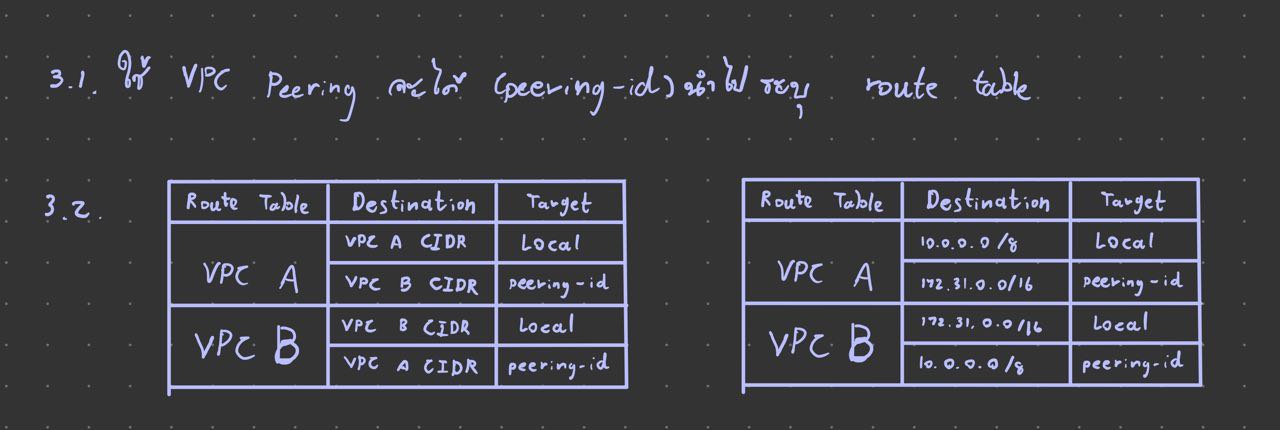 3.1. ใช้ VPC Peering จะได้ (peering-id) นำไป ระบุ route table
3.2.
Route Table Destination Target
VPC A
VPC A CIDR Local
VPC B CIDR peering-id
VPC B
VPC B CIDR Local
VPC A CIDR peering-id
Route Table Destination Target
VPC A
10.0.0.0/8 Local
172.31.0.0/16 peering-id
VPC B
172.31.0.0/16 Local
10.0.0.0/8 peering-id